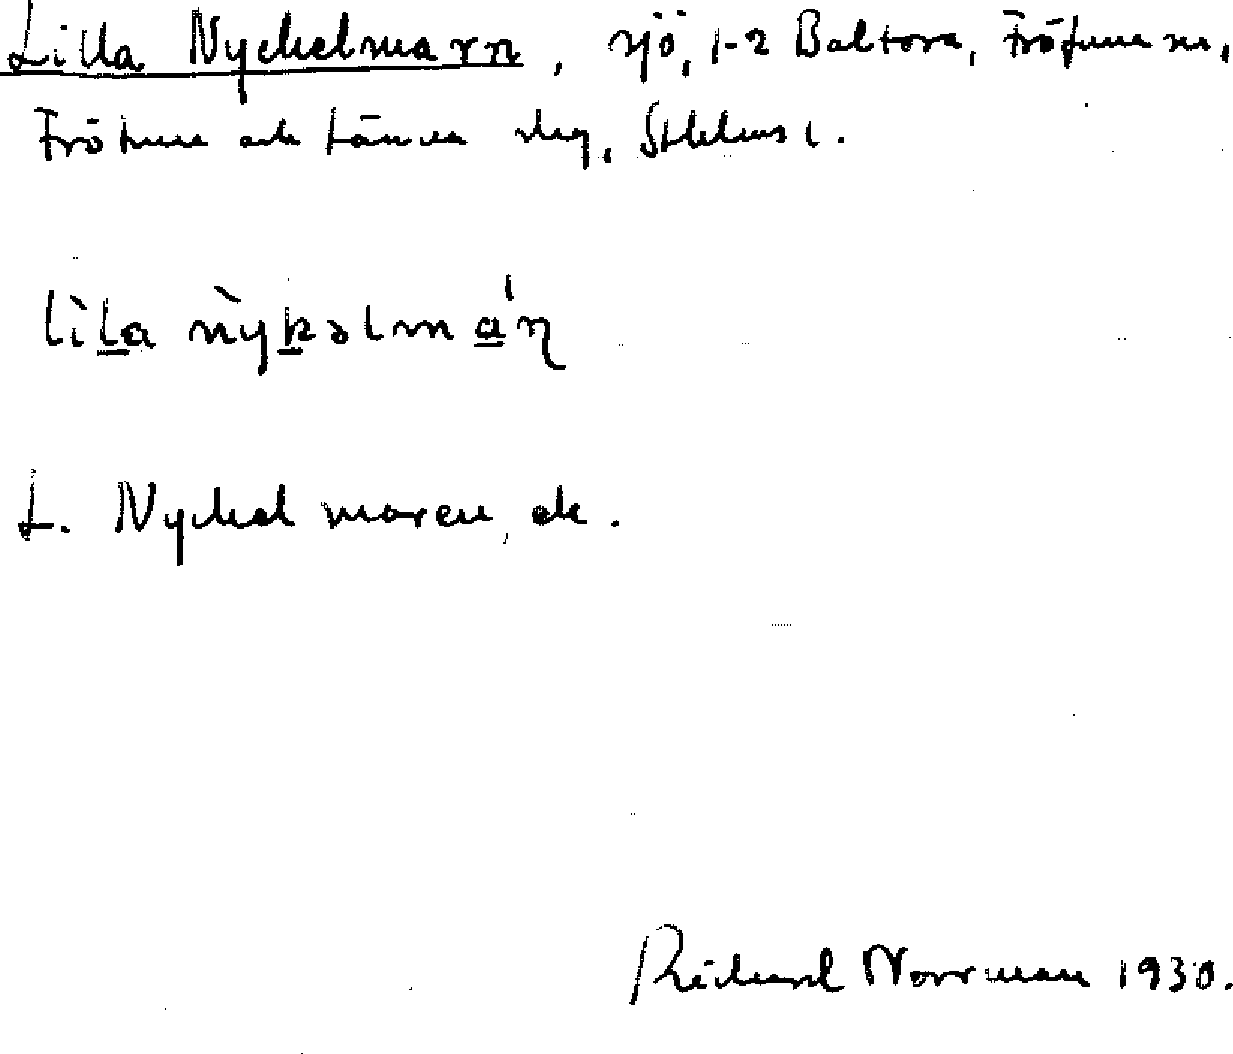 Lilla Nyckelmarn, sjö, 1-2 Baltora, Frötuna sn,
Frötuna och Länna slg, Sthlms l.
lìla ǹykəlmá'ɳ
L. Nyckelmaren, ek.
Richard Norrman 1930.